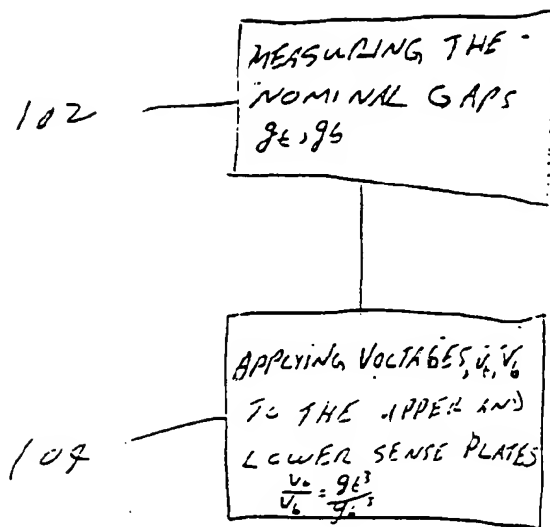 102
MEASURING THE
NOMINAL GAPS
gt, gb
104
APPLYING VOLTAGES, Vt, Vb
TO THE UPPER AND
LOWER SENSE PLATES
Vb/Vb = gt³/gb³